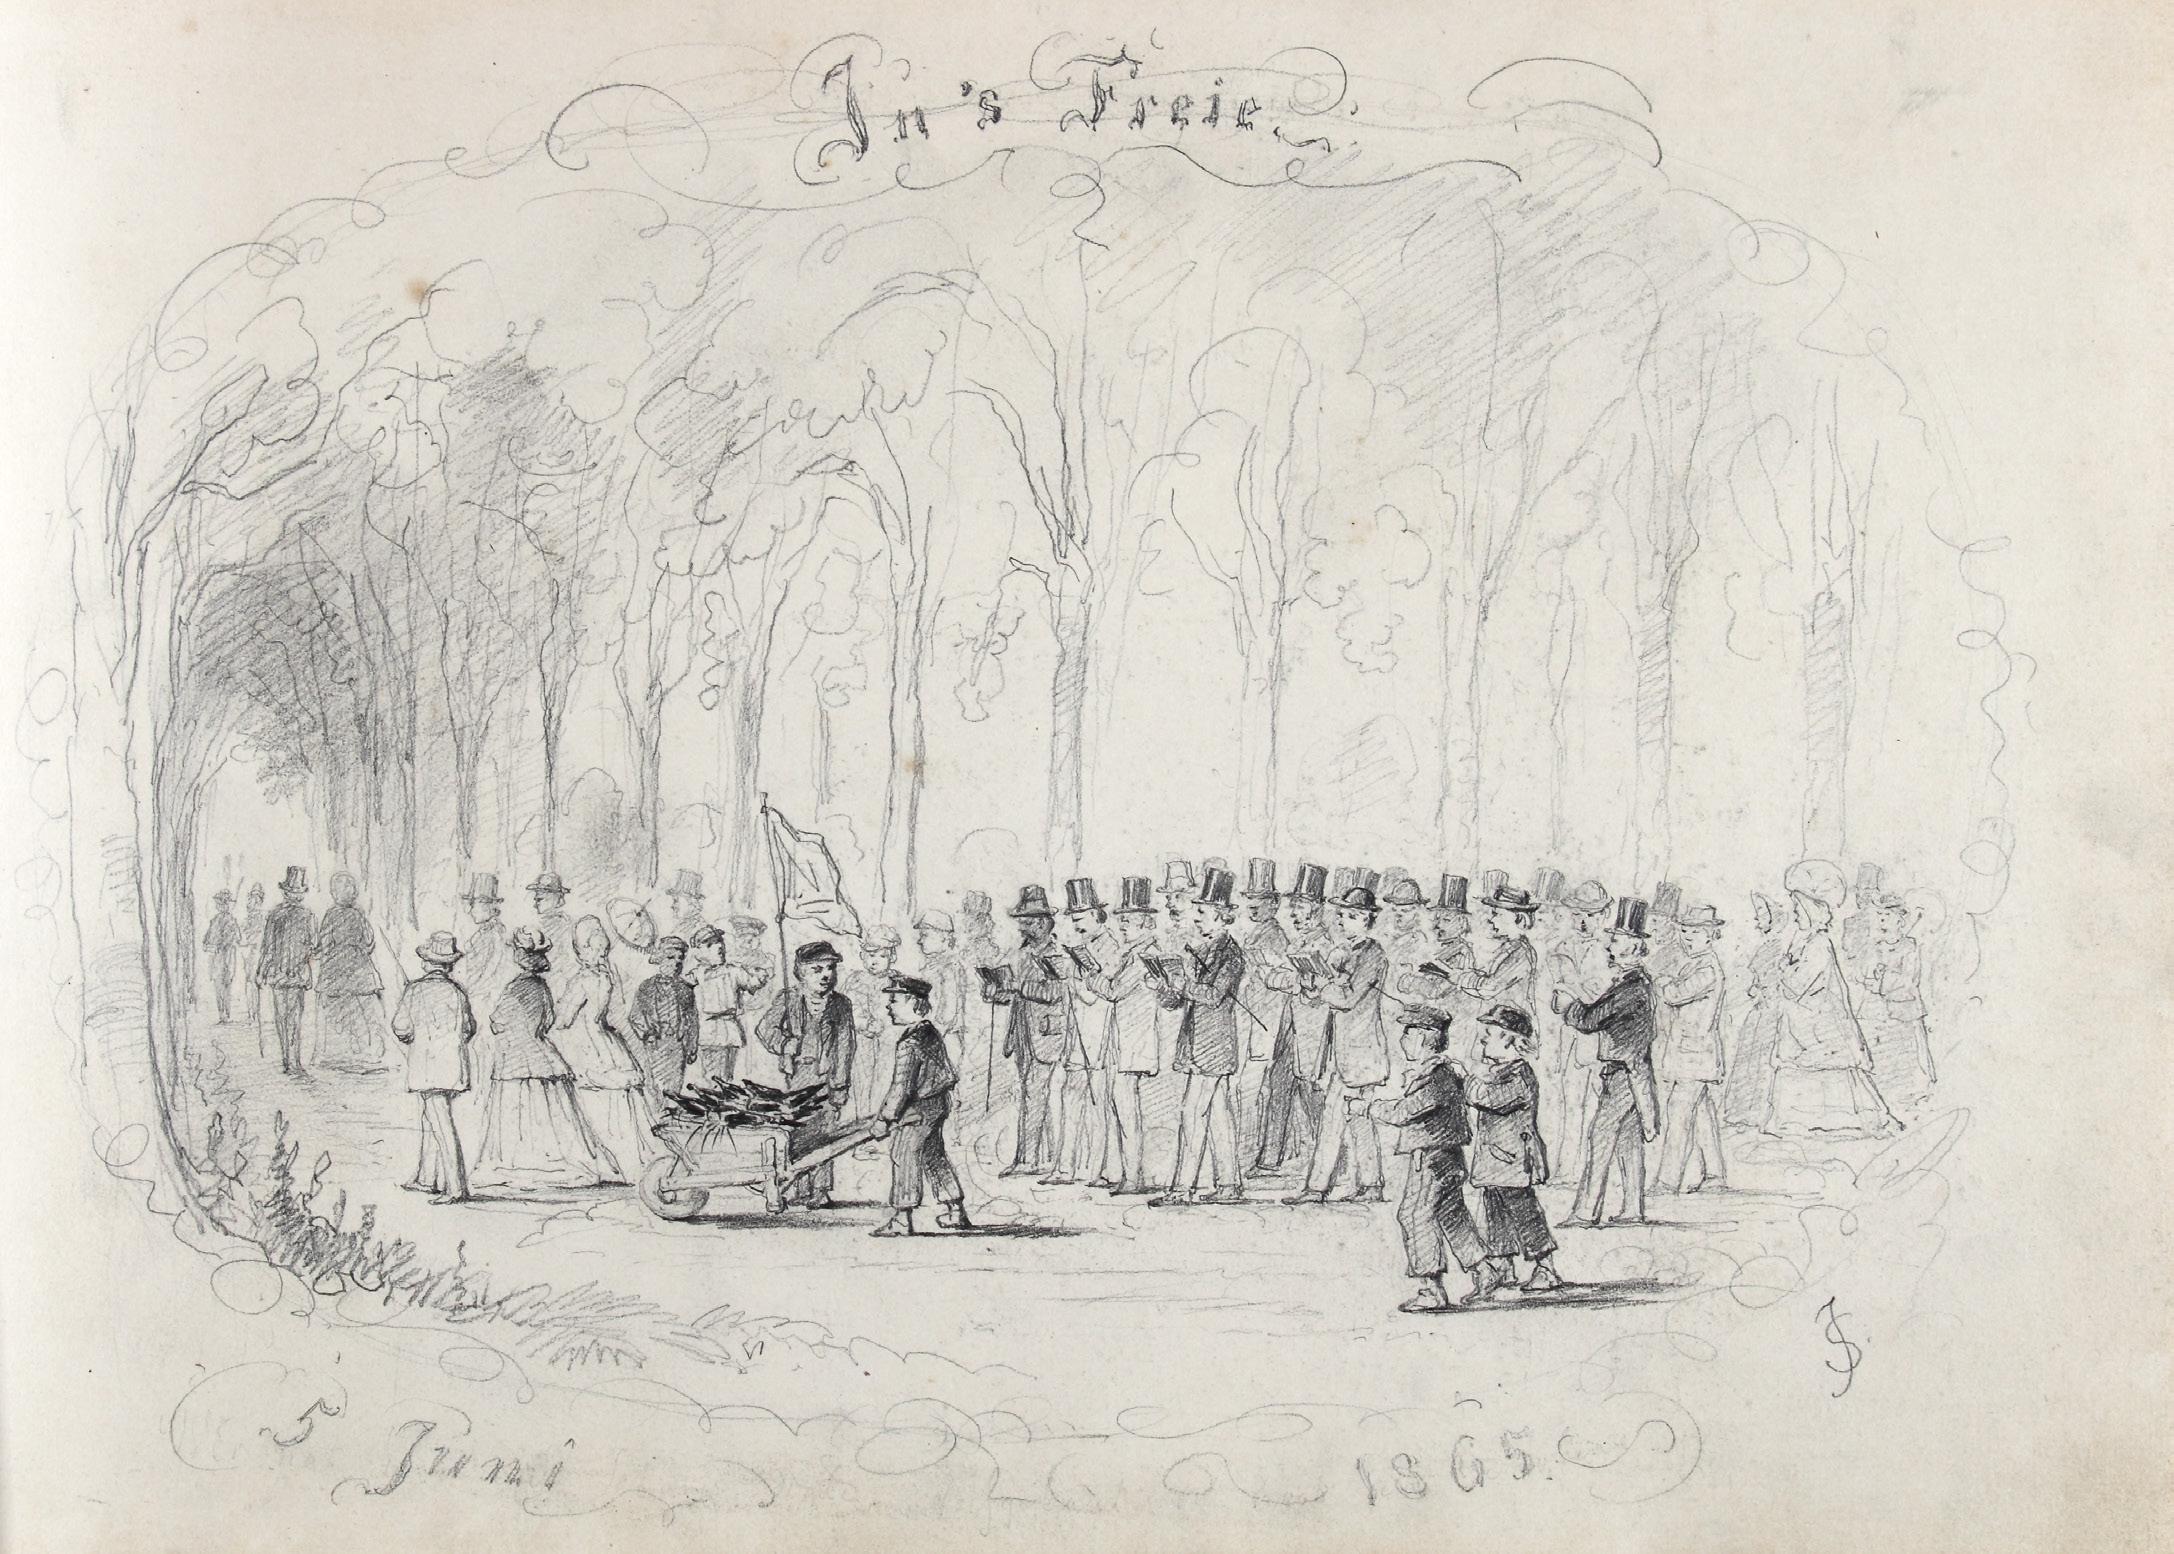 In's Freie.
5 Juni 1865.
JS